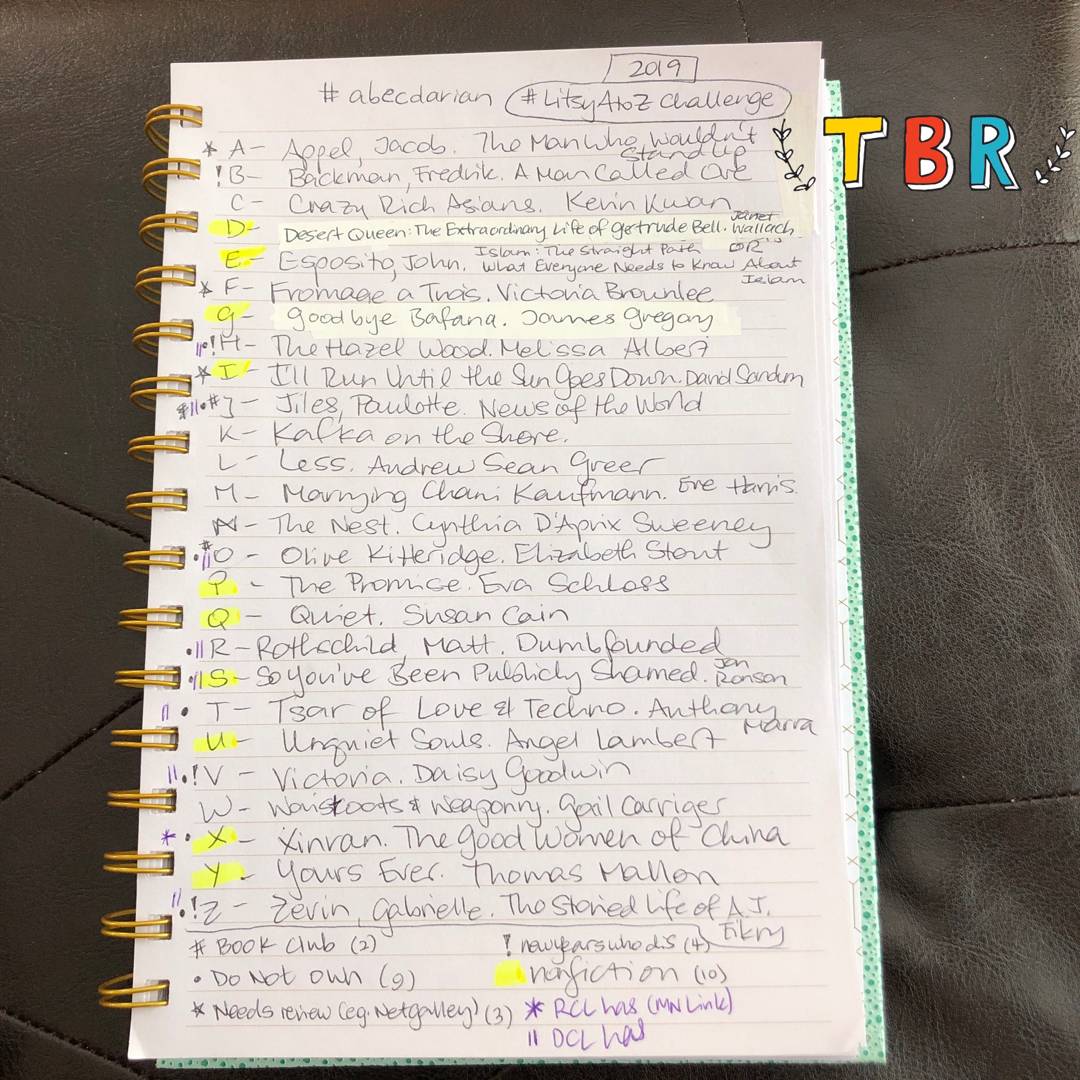 2019
# abecdarian #LitsyAtoZ challenge
TBR
* A- Appel, Jacob. The Man Who Wouldn't
Stand Up
! B- Backman, Fredrik. A Man Called Ove
C- Crazy Rich Asians. Kevin Kwan
D- Desert Queen: The Extraordinary Life of Gertrude Bell. Janet Wallach
E- Esposito, John. Islam: The Straight OR
What Everyone Needs to Know About
Islam
* F- Fromage a Trois. Victoria Brownlee
G- Goodbye Bafana. James Gregory
||•! H- The Hazel Wood. Melissa Albert
* I- I'll Run Until the Sun Goes Down. David Sandum
#||•# J- Jiles, Paulette. News of the World
K- Kafka on the Shore.
L- Less. Andrew Sean Greer
M- Marrying Chani Kaufmann. Eve Harris
N- The Nest. Cynthia D'Aprix Sweeney
•#|| O- Olive Kitteridge. Elizabeth Strout
P- The Promise. Eva Schloss
Q- Quiet. Susan Cain
•|| R- Rothschild, Matt. Dumbfounded
•|| S- So You've Been Publicly Shamed. Jon
Ronson
|| • T- Tsar of Love & Techno. Anthony
Marra
U- Unquiet Souls. Angel Lambert
||•! V- Victoria. Daisy Goodwin
W- Waistcoats & Weaponry. Gail Carriger
* • X- Xinran. The Good Women of China
Y- Yours Ever. Thomas Mallon
||•! Z- Zevin, Gabrielle. The Storied Life of A.J.
Fikry
# Book Club (2) ! newyearswhodis (4)
• Do Not own (9) nonfiction (10)
* Needs review (eg. Netgalley) (3) * RCL has (MN Link)
|| DCL has